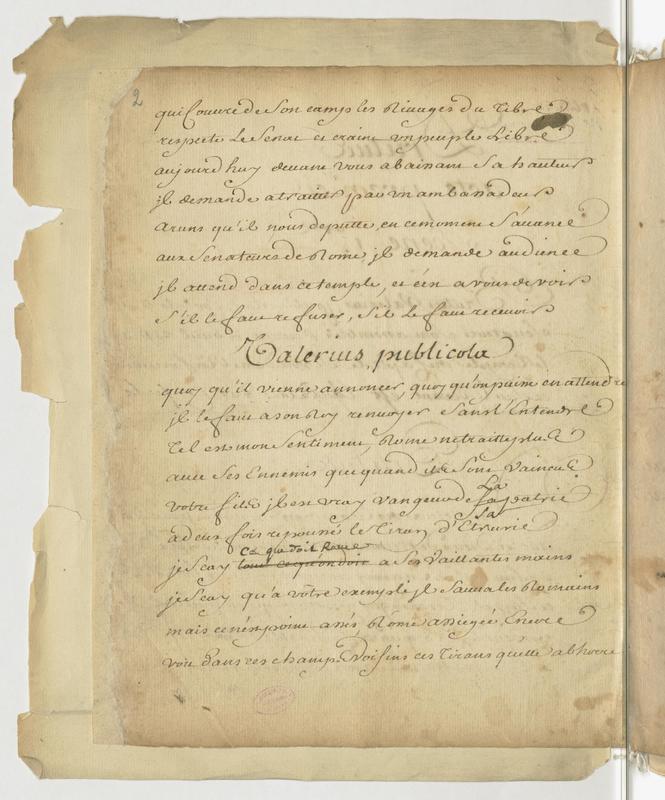 2
qui Couvre de Son camp les Rivages du Tibre
respecte Le Senat et craint un peuple Libre
aujourd'huy devant vous abaissant Sa hauteur
jl demande a traitter par un ambassadeur
Aruns qu'il nous deputte, en ce moment S'avance
aux Senateurs de Rome jl demande audience
jl attend dans ce temple, et c'est a vous de voir
S'il le faut refuser, S'il Le faut recevoir
Valerius publicola
quoy qu'il vienne annoncer, quoy qu'on puisse en attendre
jl le faut a son Roy renvoyer Sans l'Entendre
Tel est mon Sentiment, Rome ne traitte plus
avec Ses Ennemis que quand ils Sont Vaincus
La
votre fils jl est vray vangeur de sa patrie
Sa
a deux fois repoussé le Tiran d'Etrurie
ce que doit Rome
je Scay tout ce qu'on doit a Ses Vaillantes mains
je Scay qu'a vôtre exemple jl Sauva les Romains
mais ce n'est point assés, Rome assiegée Encore
voit dans ces champs Voisins ces Tirans qu'elle abhorre